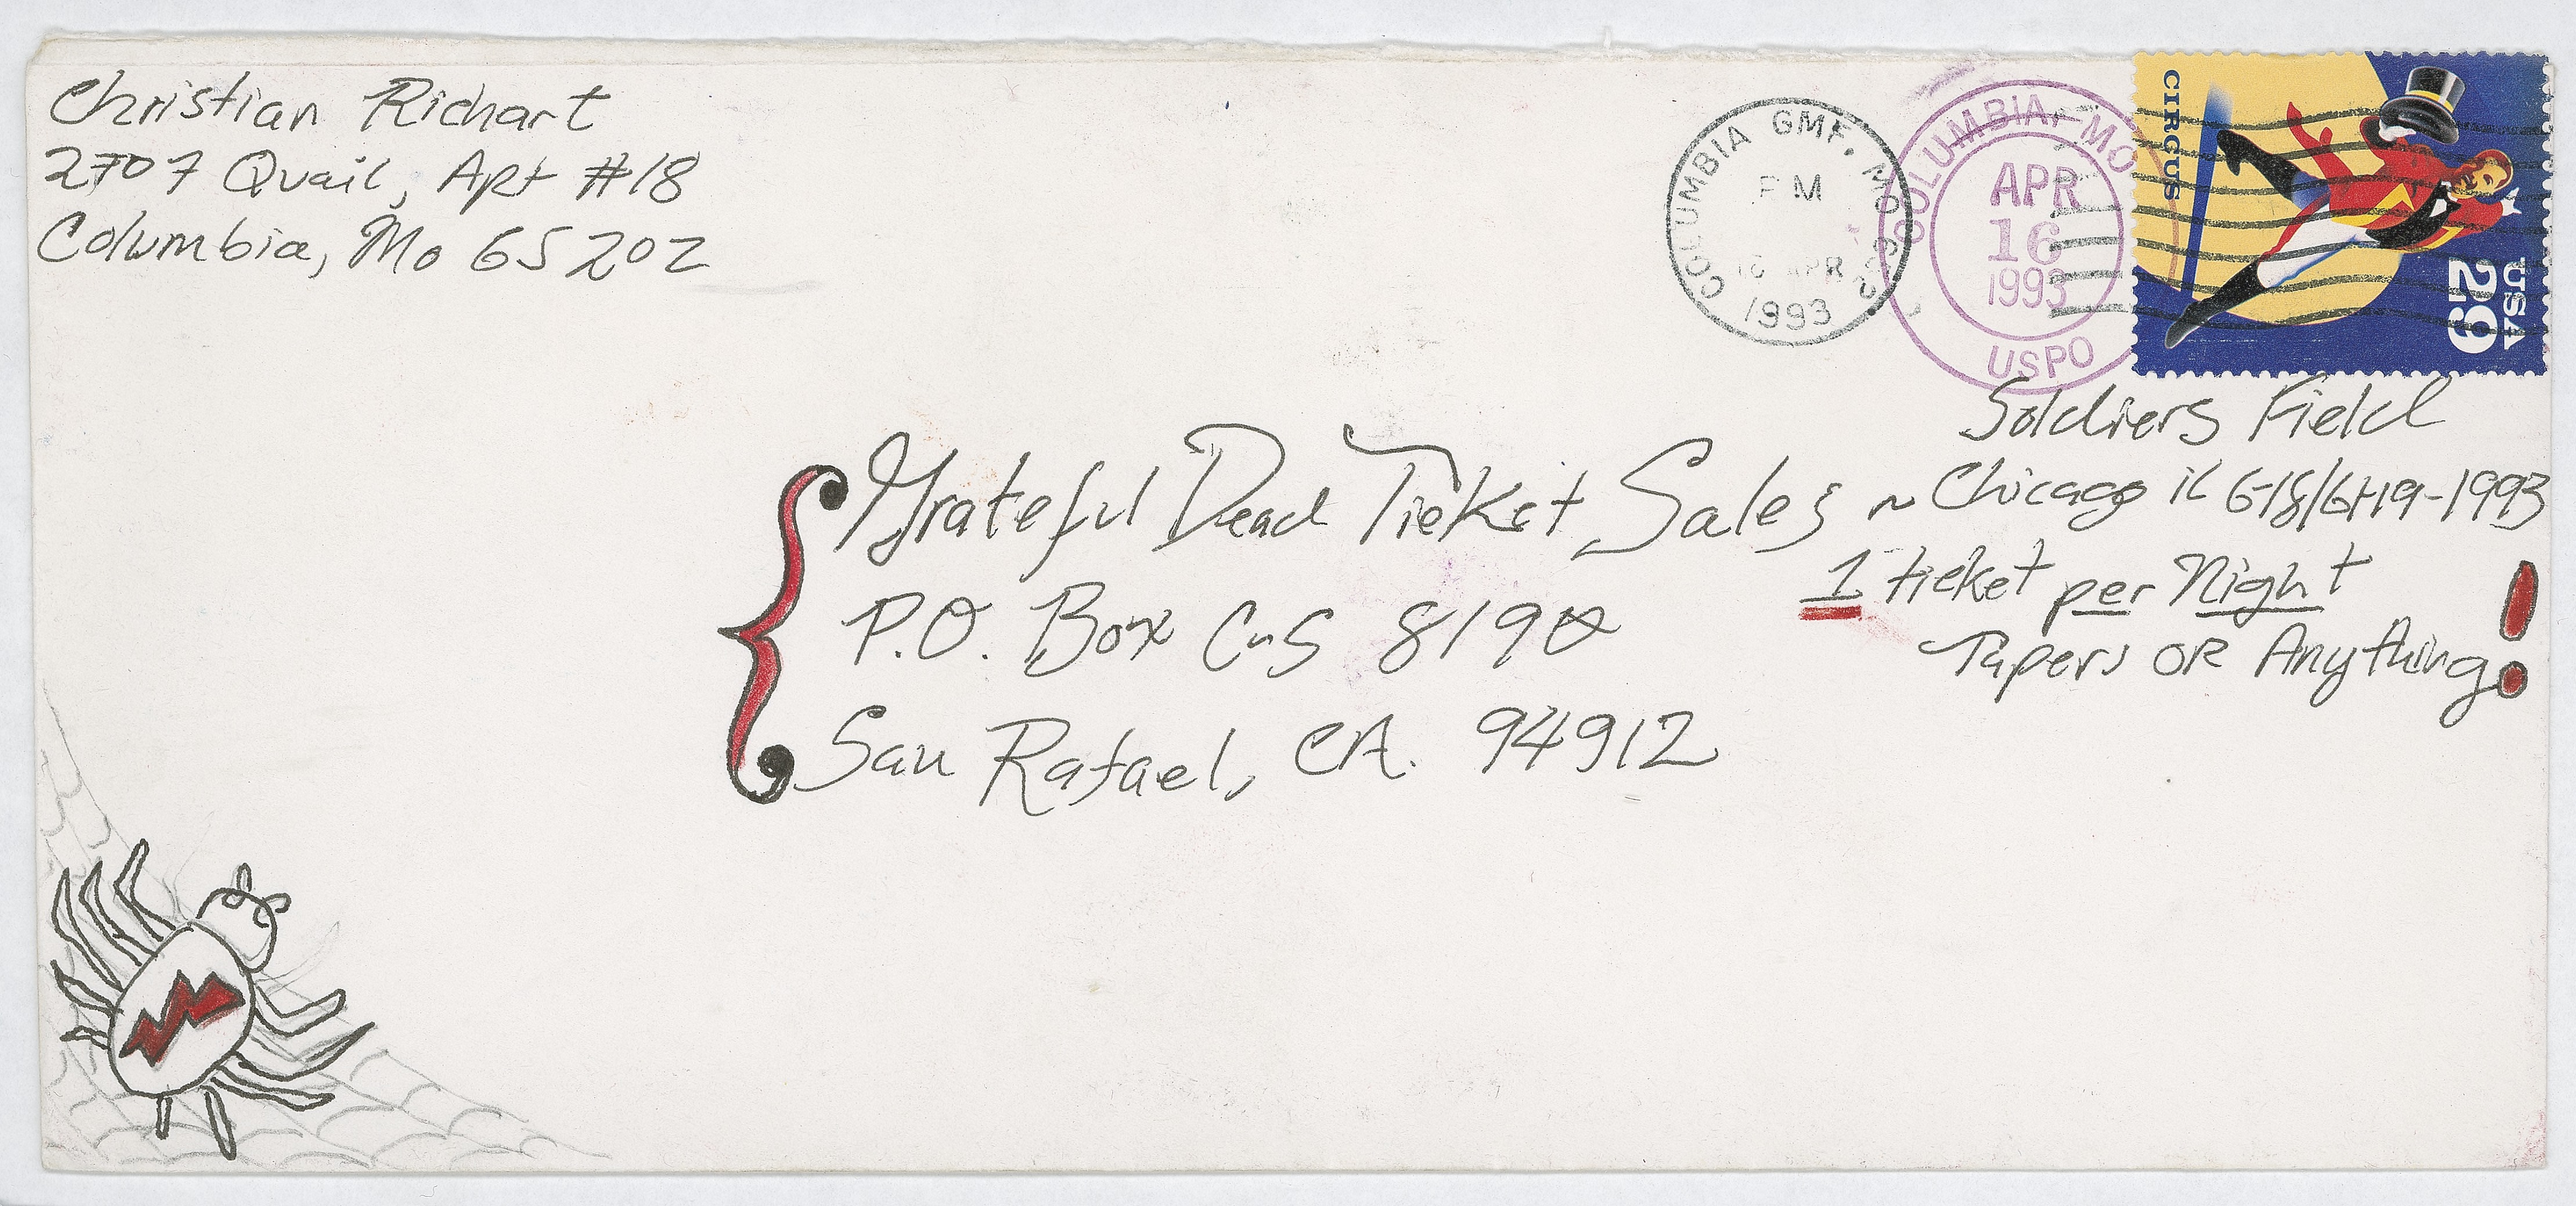 Christian Richart
2707 Quail, Apt #18
Columbia, Mo 65202
COLUMBIA GMF, MO 652
PM
16 APR
1993
COLUMBIA, MO
APR
16
1993
USPO
CIRCUS
USA
29
Soldiers Field
Grateful Dead Ticket Sales ~ Chicago il 6-18/6-19-1993
1 ticket per Night
P.O. Box CnS 8190
Tapers OR Anything!
San Rafael, CA. 94912